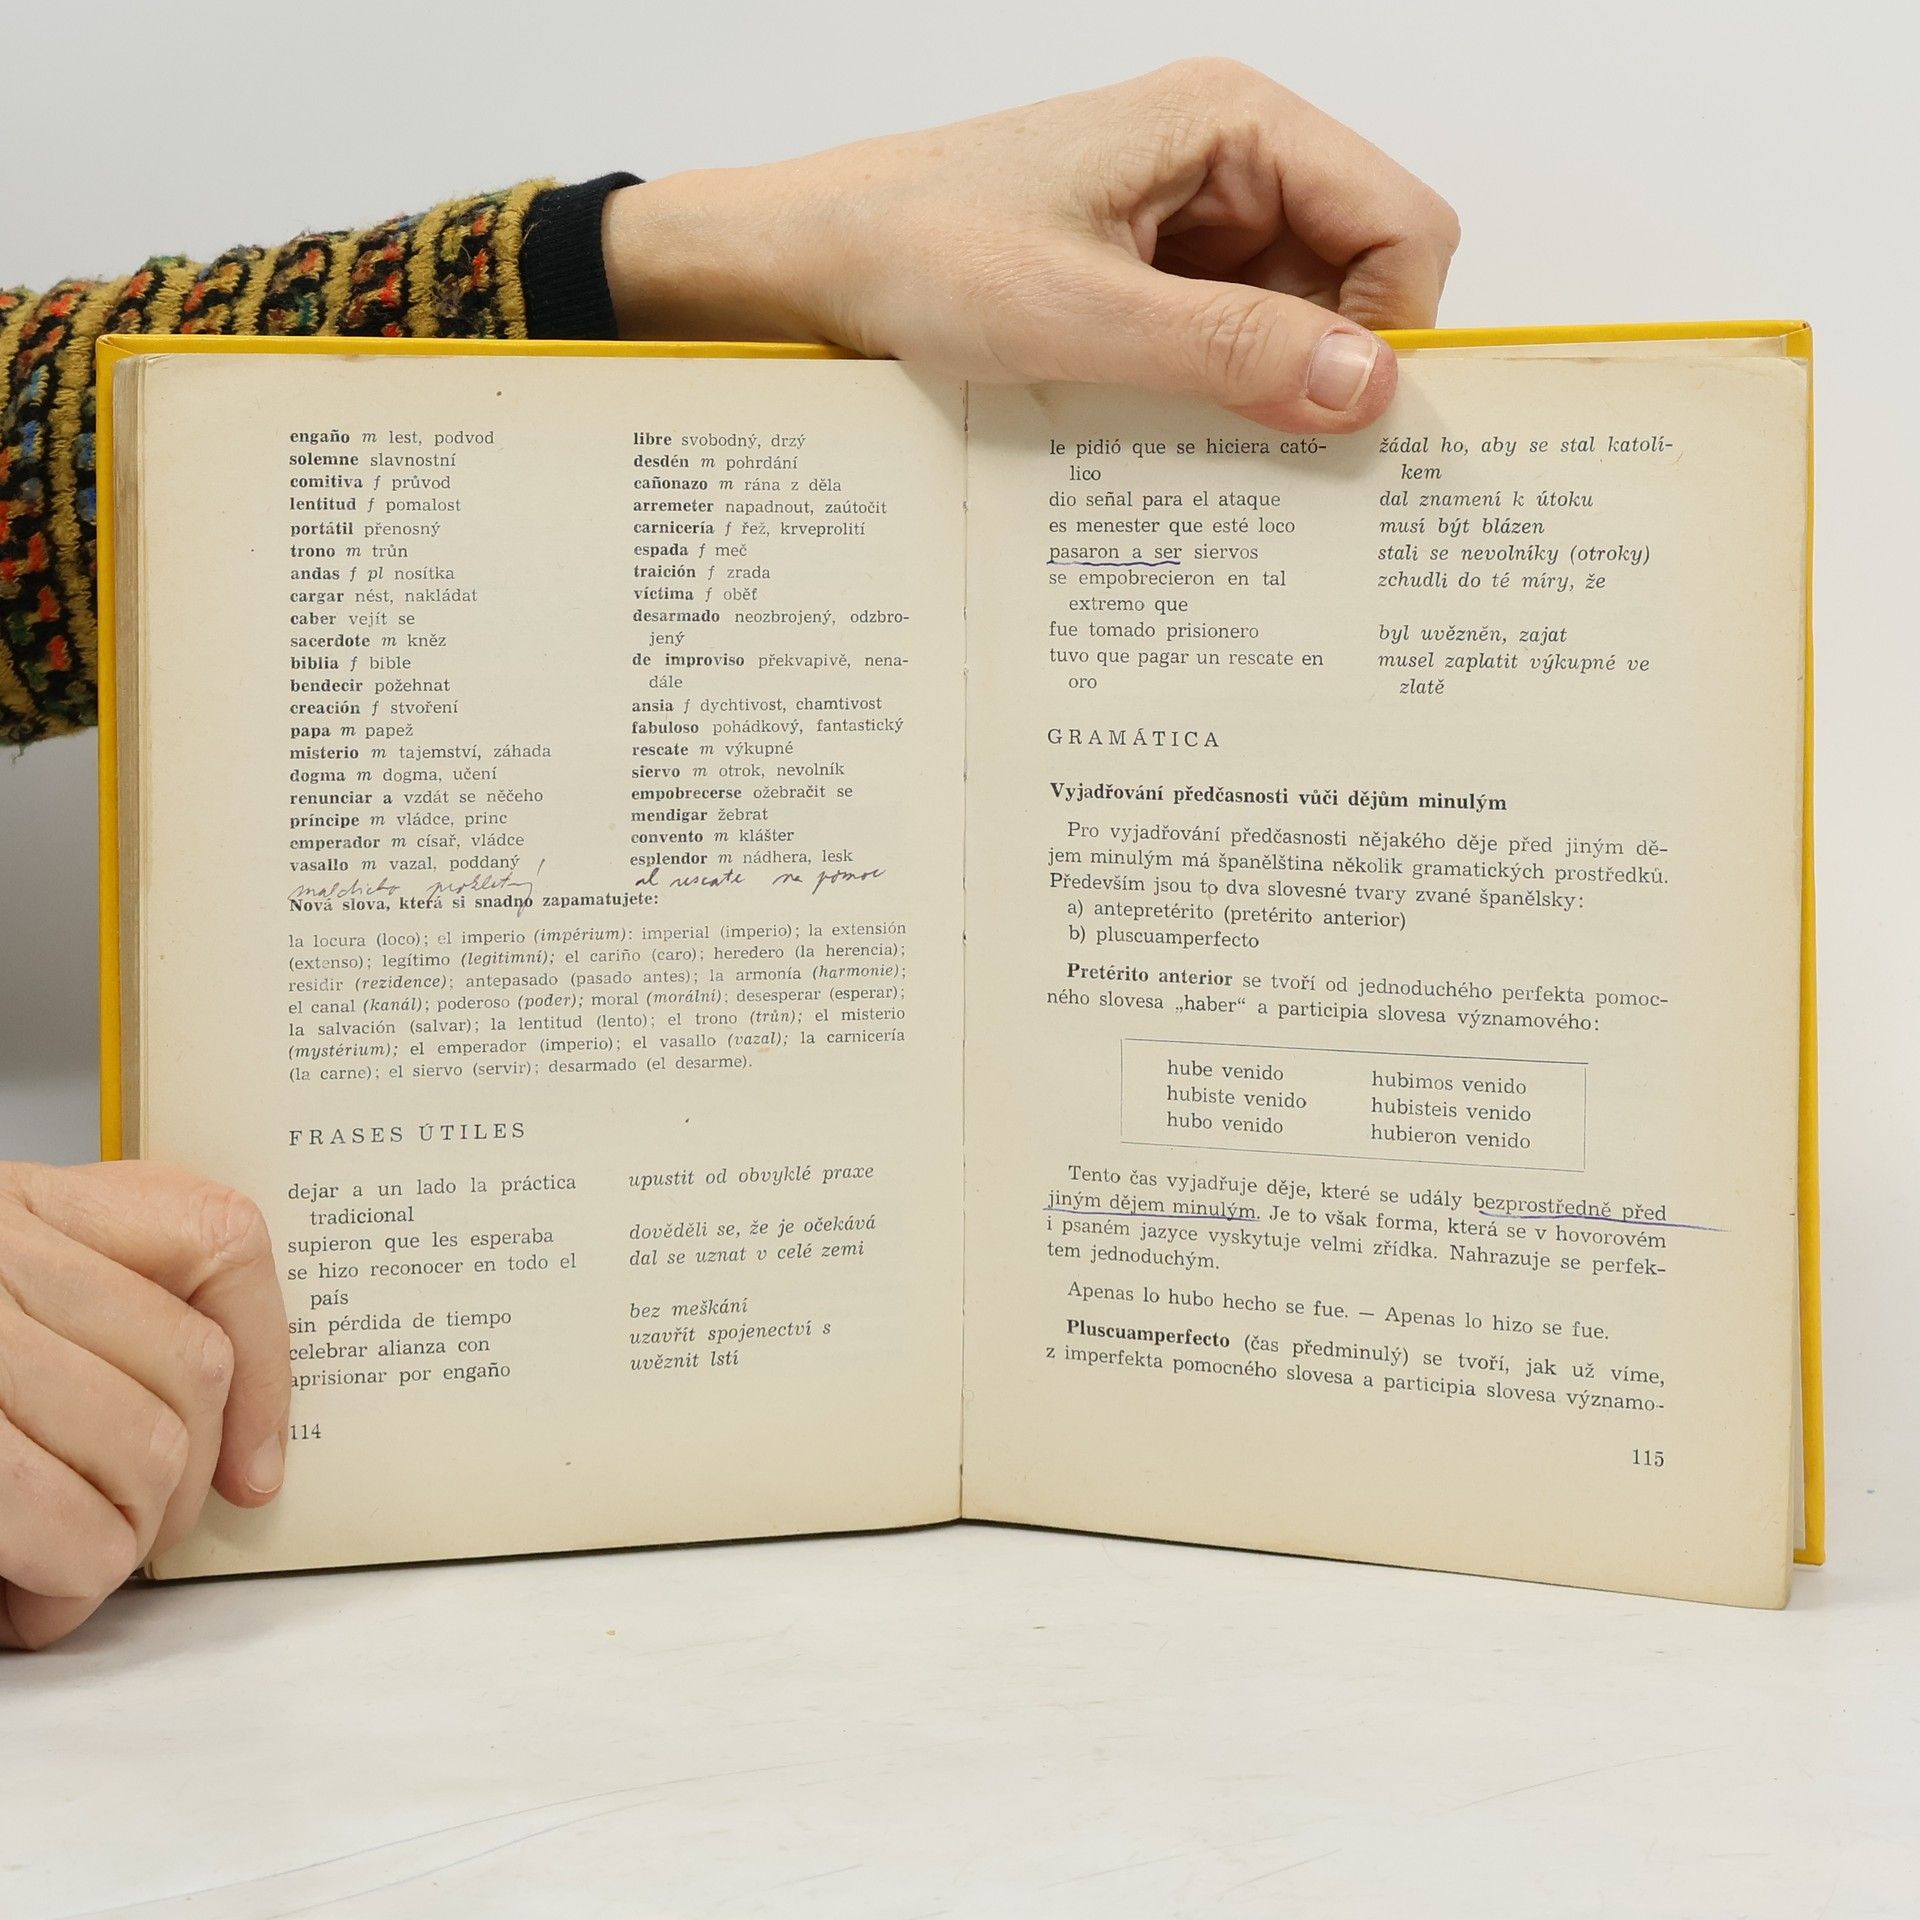 engaño m lest, podvod
solemne slavnostní
comitiva f průvod
lentitud f pomalost
portátil přenosný
trono m trůn
andas f pl nosítka
cargar nést, nakládat
caber vejít se
sacerdote m kněz
biblia f bible
bendecir požehnat
creación f stvoření
papa m papež
misterio m tajemství, záhada
dogma m dogma, učení
renunciar a vzdát se něčeho
príncipe m vládce, princ
emperador m císař, vládce
vasallo m vazal, poddaný
maldicho prokletý
libre svobodný, drzý
desdén m pohrdání
cañonazo m rána z děla
arremeter napadnout, zaútočit
carnicería f řež, krveprolití
espada f meč
traición f zrada
víctima f oběť
desarmado neozbrojený, odzbro-
jený
de improviso překvapivě, nena-
dále
ansia f dychtivost, chamtivost
fabuloso pohádkový, fantastický
rescate m výkupné
siervo m otrok, nevolník
empobrecerse ožebračit se
mendigar žebrat
convento m klášter
esplendor m nádhera, lesk
al rescate na pomoc
Nová slova, která si snadno zapamatujete:
la locura (loco); el imperio (impérium): imperial (imperio); la extensión
(extenso); legítimo (legitimní); el cariño (caro); heredero (la herencia);
residir (rezidence); antepasado (pasado antes); la armonía (harmonie);
el canal (kanál); poderoso (poder); moral (morální); desesperar (esperar);
la salvación (salvar); la lentitud (lento); el trono (trůn); el misterio
(mystérium); el emperador (imperio); el vasallo (vazal); la carnicería
(la carne); el siervo (servir); desarmado (el desarme).
FRASES ÚTILES
dejar a un lado la práctica upustit od obvyklé praxe
tradicional
supieron que les esperaba dověděli se, že je očekává
se hizo reconocer en todo el dal se uznat v celé zemi
país
sin pérdida de tiempo bez meškání
celebrar alianza con uzavřít spojenectví s
aprisionar por engaño uvěznit lstí
114
le pidió que se hiciera cató- žádal ho, aby se stal katolí-
lico kem
dio señal para el ataque dal znamení k útoku
es menester que esté loco musí být blázen
pasaron a ser siervos stali se nevolníky (otroky)
se empobrecieron en tal zchudli do té míry, že
extremo que
fue tomado prisionero byl uvězněn, zajat
tuvo que pagar un rescate en musel zaplatit výkupné ve
oro zlatě
GRAMÁTICA
Vyjadřování předčasnosti vůči dějům minulým
Pro vyjadřování předčasnosti nějakého děje před jiným dě-
jem minulým má španělština několik gramatických prostředků.
Především jsou to dva slovesné tvary zvané španělsky:
a) antepretérito (pretérito anterior)
b) pluscuamperfecto
Pretérito anterior se tvoří od jednoduchého perfekta pomoc-
ného slovesa „haber“ a participia slovesa významového:
hube venido hubimos venido
hubiste venido hubisteis venido
hubo venido hubieron venido
Tento čas vyjadřuje děje, které se udály bezprostředně před
jiným dějem minulým. Je to však forma, která se v hovorovém
i psaném jazyce vyskytuje velmi zřídka. Nahrazuje se perfek-
tem jednoduchým.
Apenas lo hubo hecho se fue. — Apenas lo hizo se fue.
Pluscuamperfecto (čas předminulý) se tvoří, jak už víme,
z imperfekta pomocného slovesa a participia slovesa významo-
115